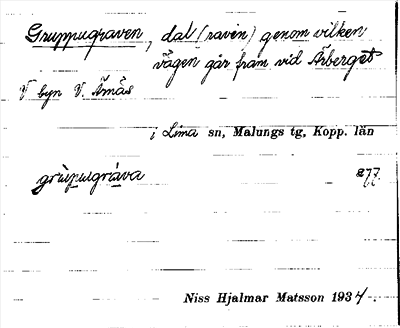 Gruppugraven, dal (ravin) genom vilken
vägen går fram vid Ärberget
V byn V. Ärnäs
i Lima sn, Malungs tg, Kopp. län
grùpugráva 277.
Niss Hjalmar Matsson 1934.